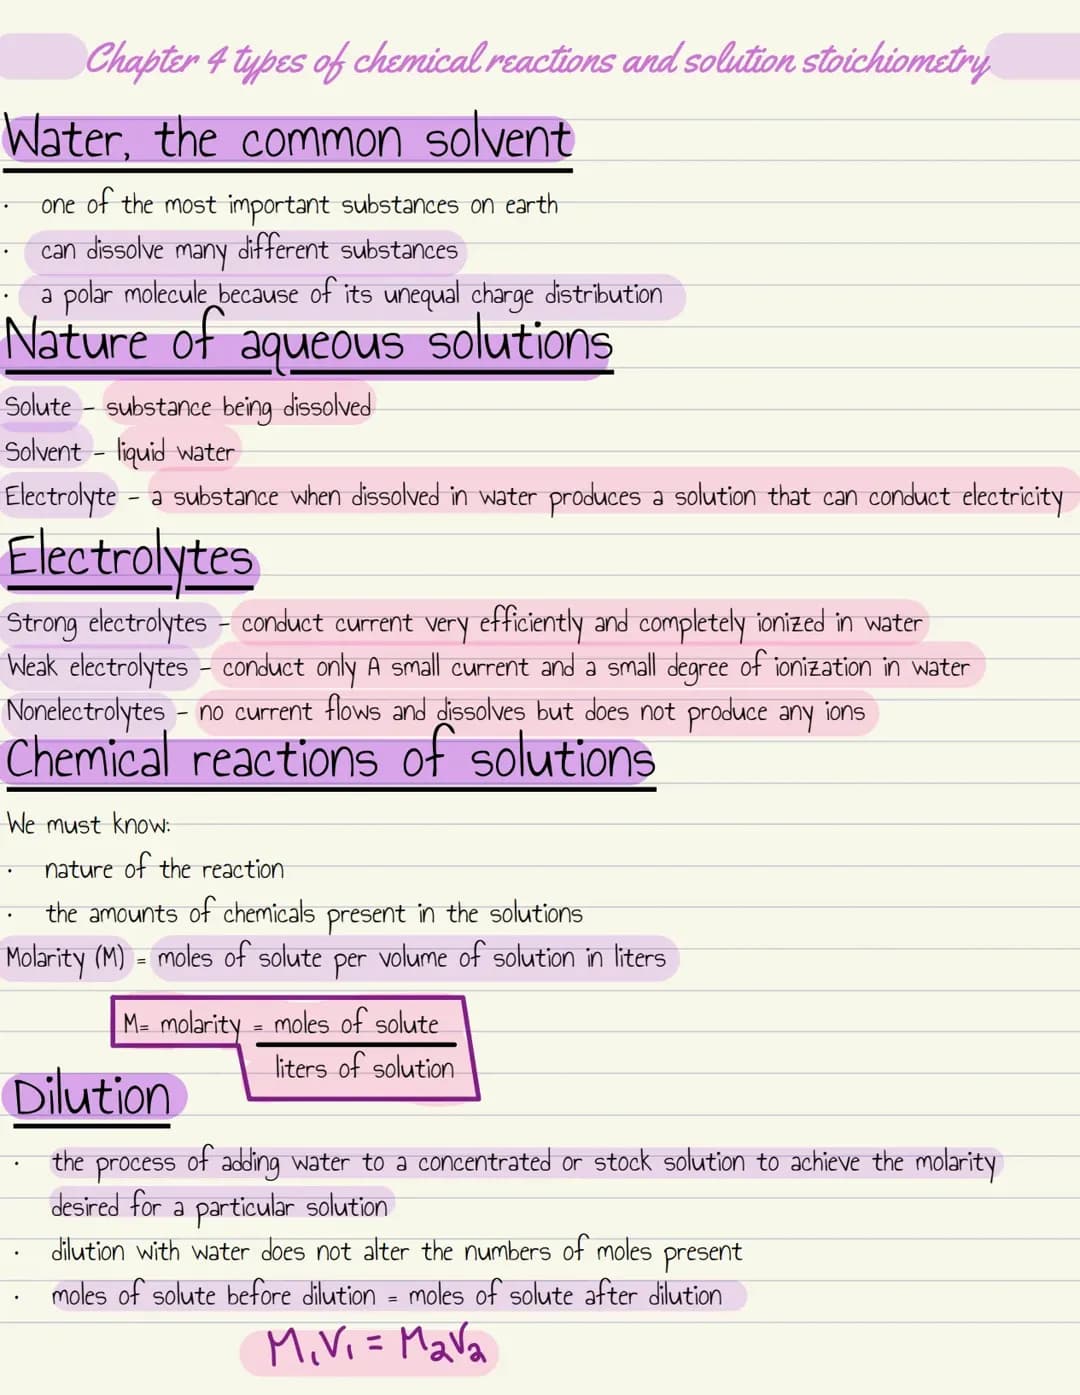 Chapter 4 types of chemical reactions and solution stoichiometry
Water, the common solvent
· one of the most important substances on earth
· can dissolve many different substances
· a polar molecule because of its unequal charge distribution
Nature of aqueous solutions
Solute - substance being dissolved
Solvent - liquid water
Electrolyte - a substance when dissolved in water produces a solution that can conduct electricity
Electrolytes
Strong electrolytes - conduct current very efficiently and completely ionized in water
Weak electrolytes - conduct only A small current and a small degree of ionization in water
Nonelectrolytes - no current flows and dissolves but does not produce any ions
Chemical reactions of solutions
We must know:
· nature of the reaction
· the amounts of chemicals present in the solutions
Molarity (M) = moles of solute per volume of solution in liters
M= molarity = moles of solute
liters of solution
Dilution
· the process of adding water to a concentrated or stock solution to achieve the molarity
desired for a particular solution
· dilution with water does not alter the numbers of moles present
· moles of solute before dilution = moles of solute after dilution
M₁V₁ = M₂V₂